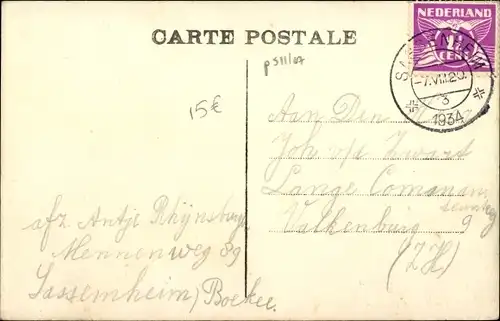 CARTE POSTALE
NEDERLAND
CENT
-7.VIII.20.
3
1934
p511/07
15€
Aan Den
Joh v/d Zwart
Lange
Valkenburg 9
(ZH)
afz. Antje Rhijnsburger
Mennenweg 89
Sassemheim, Boekee.